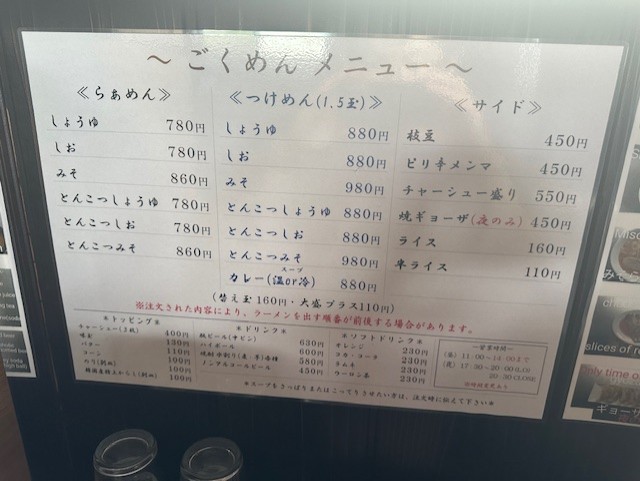 ～ ごくめん メニュー ～
≪らぁめん≫
しょうゆ 780円
しお 780円
みそ 860円
とんこつしょうゆ 780円
とんこつしお 780円
とんこつみそ 860円
≪つけめん(1.5玉)≫
しょうゆ 880円
しお 880円
みそ 980円
とんこつしょうゆ 880円
とんこつしお 880円
とんこつみそ 980円
スープ
カレー(温or冷) 880円
≪サイド≫
枝豆 450円
ピリ辛メンマ 450円
チャーシュー盛り 550円
焼ギョーザ(夜のみ) 450円
ライス 160円
半ライス 110円
(替え玉160円・大盛プラス110円)
※注文された内容により、ラーメンを出す順番が前後する場合があります。
※トッピング※
チャーシュー(3枚) 400円
味玉 130円
バター 130円
コーン 110円
100円
100円
※ドリンク※
瓶ビール(中ビン) 630円
ハイボール 600円
焼酎 580円
ノンアルコールビール 450円
※ソフトドリンク※
オレンジ 230円
コカ・コーラ 230円
230円
ウーロン茶 230円
―営業時間―
(昼) 11:00～14:00まで
(夜) 17:30～20:00(LO)
20:30 CLOSE
※スープをさっぱりまたはこってりさせたい方は、注文時に伝えて下さい※
slices of
only time o
ギョーザ